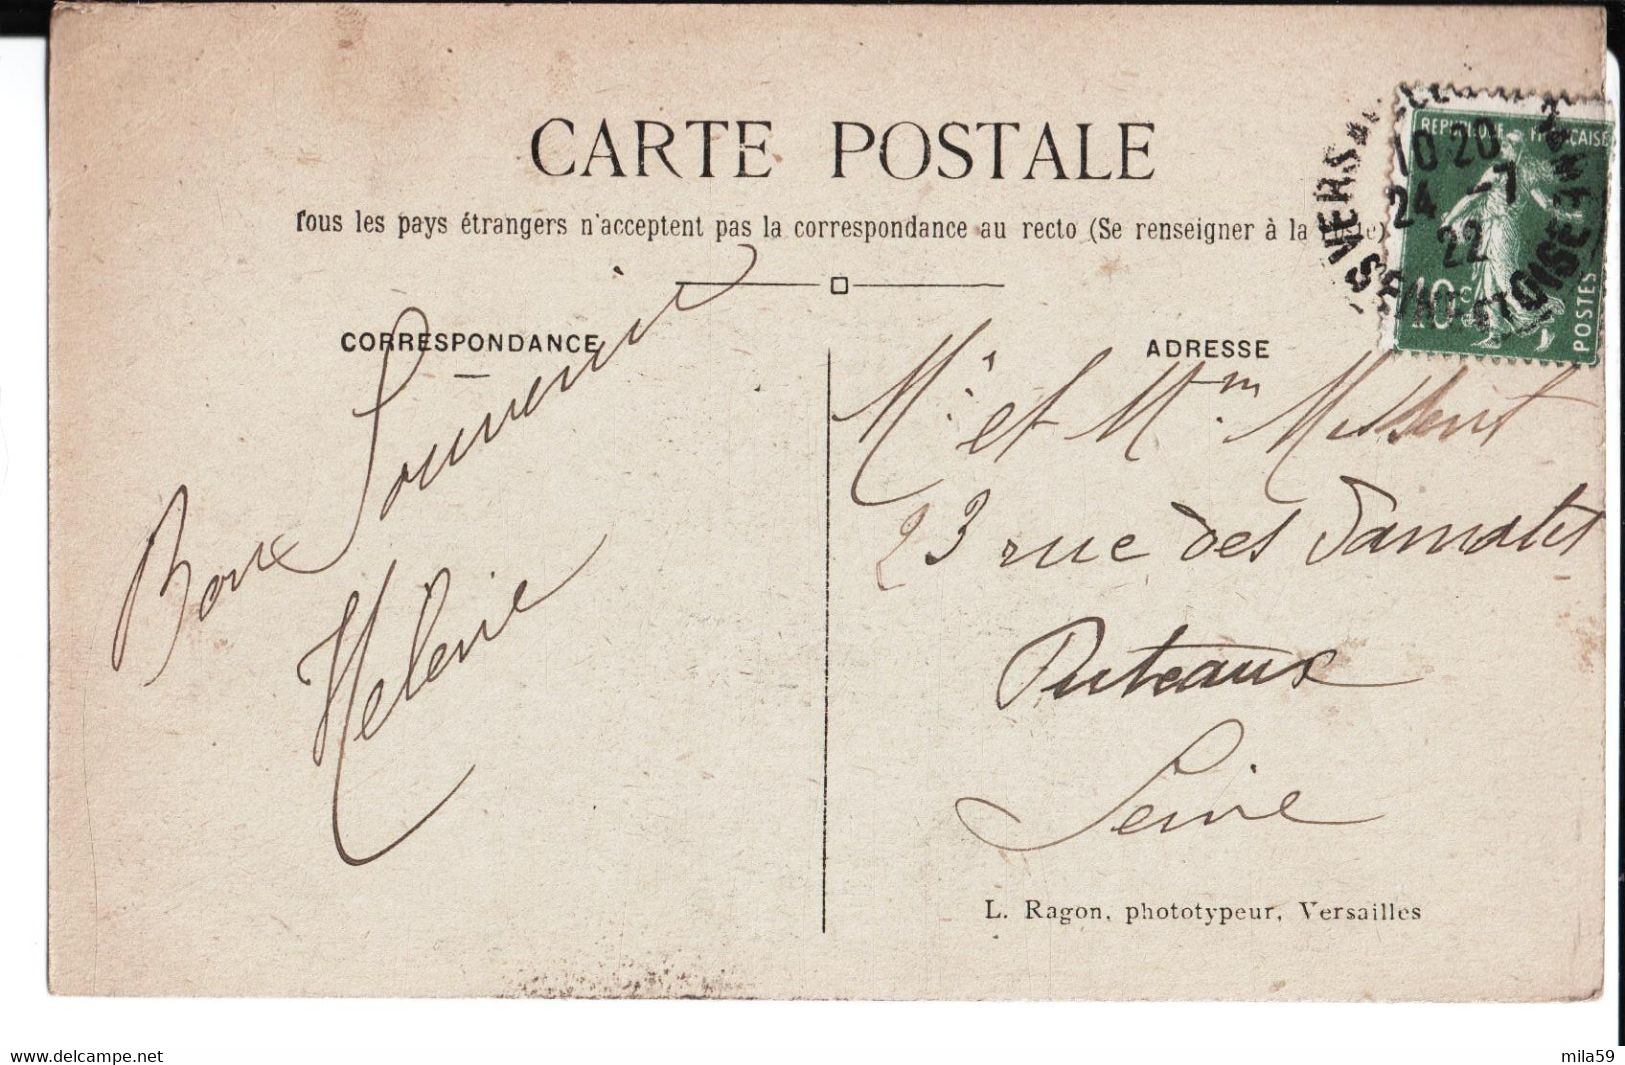 CARTE POSTALE
Tous les pays étrangers n'acceptent pas la correspondance au recto (Se renseigner à la Poste)
CORRESPONDANCE
Bon Souvenir
Helène
ADRESSE
Mr et Mm
23 rue des Damattes
Puteaux
Seine
L. Ragon, phototypeur, Versailles
REPUBLIQUE FRANÇAISE
10c
POSTES
VERSAILLES
10 20
24 -7
22
SEINE-ET-OISE
delcampe.net
mila59